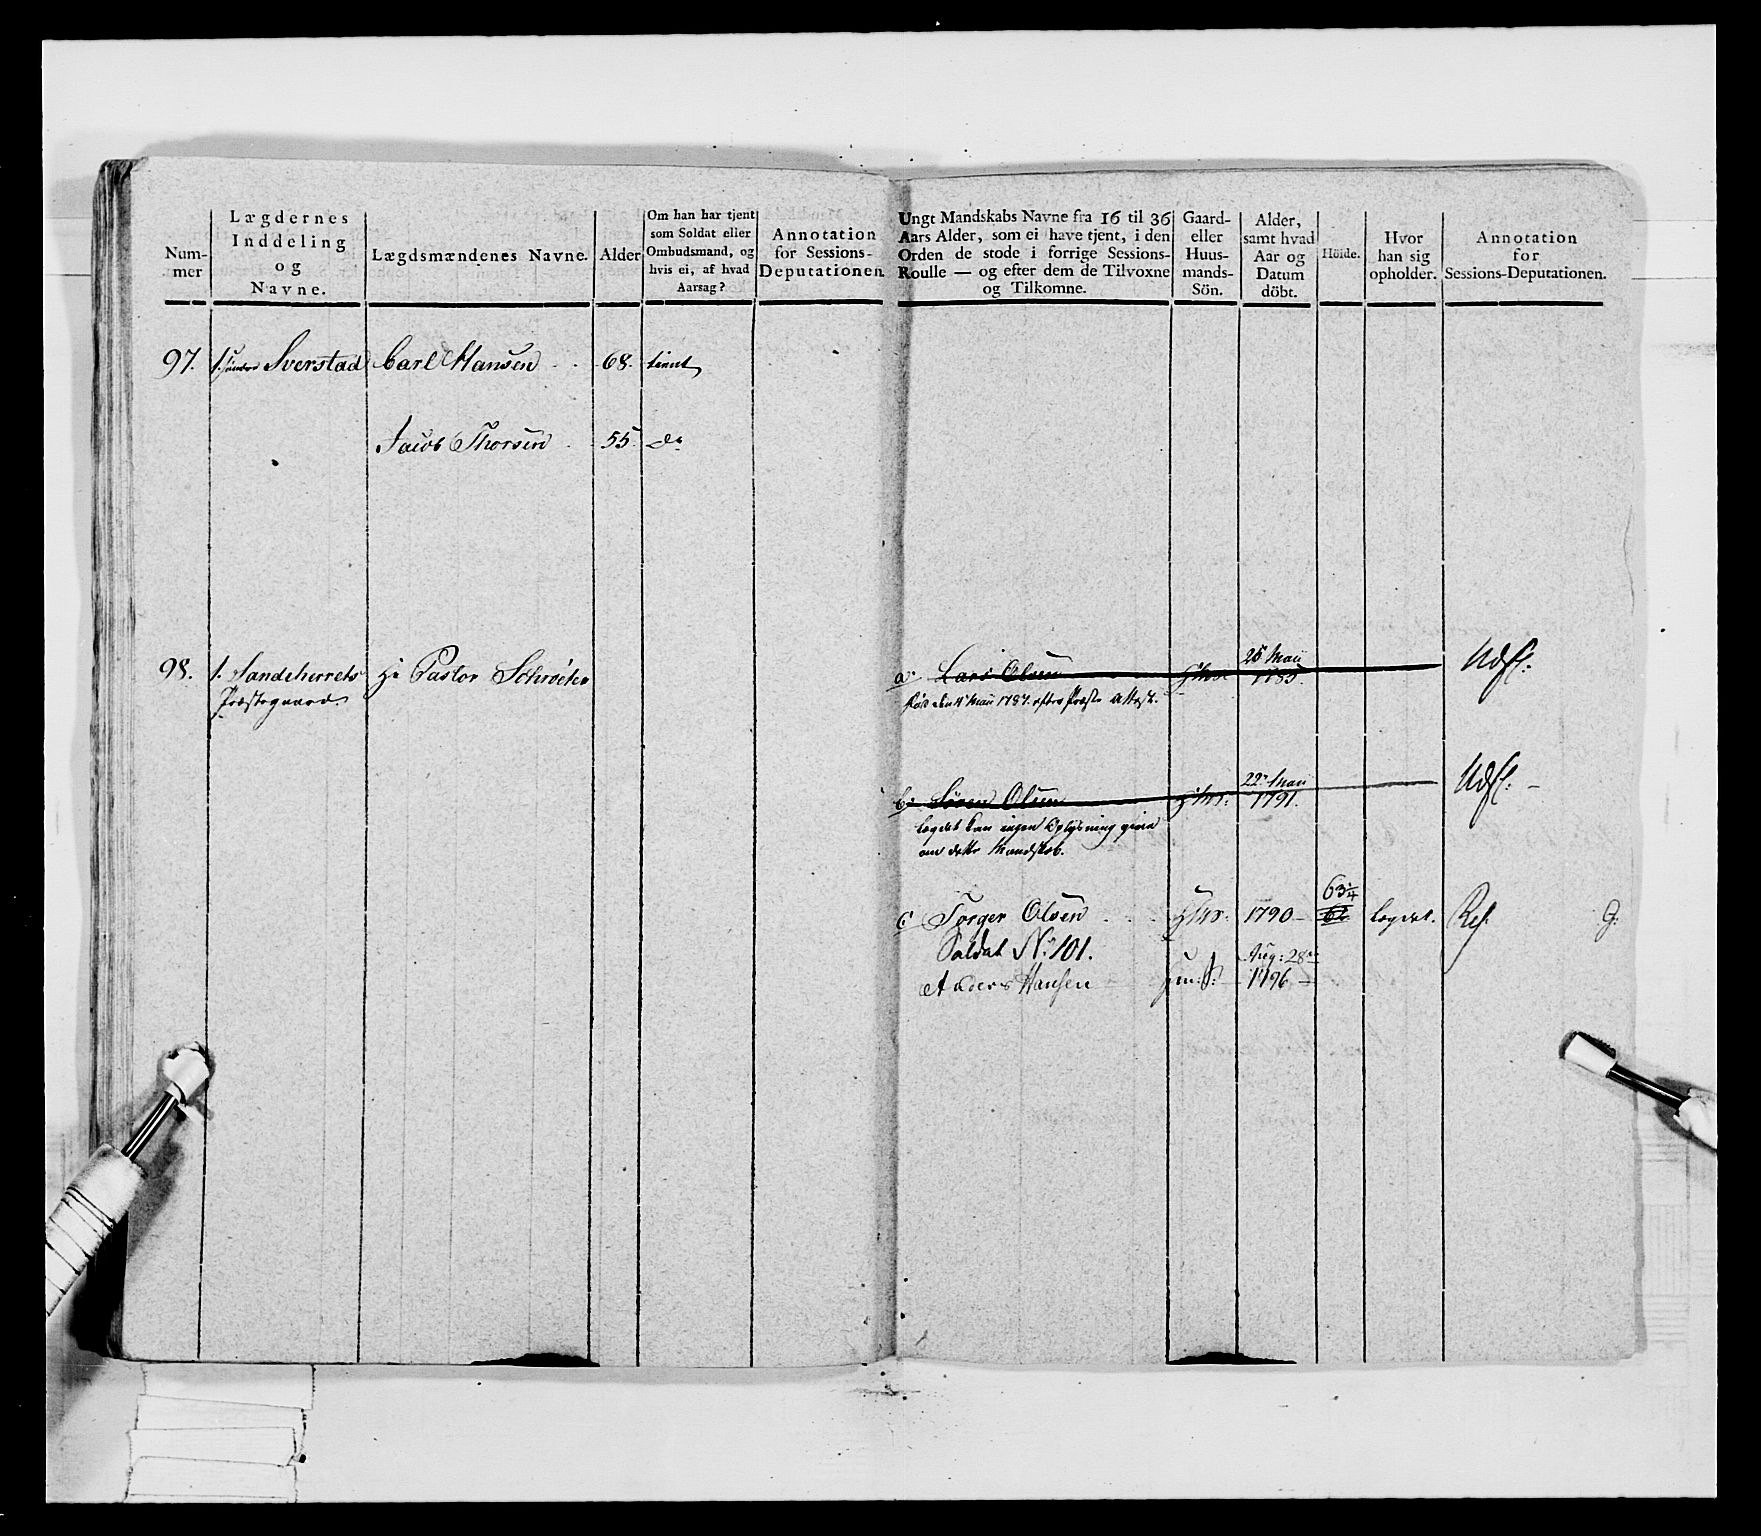 Num-
mer
Lægdernes
Inddeling
og
Navne.
Lægdsmændenes Navne.
Alder
Om han har tjent
som Soldat eller
Ombudsmand, og
hvis ei, af hvad
Aarsag?
Annotation
for Sessions-
Deputationen.
Ungt Mandskabs Navne fra 16 til 36
Aars Alder, som ei have tjent, i den
Orden de stode i forrige Sessions-
Roulle — og efter dem de Tilvoxne
og Tilkomne.
Gaard-
eller
Huus-
mands-
Sön.
Alder,
samt hvad
Aar og
Datum
döbt.
Höide.
Hvor
han sig
opholder.
Annotation
for
Sessions-Deputationen.
97. 1. Sverstad Carl Hansen 68. tient
Jacob Thorsen 55 do
98. 1. Sandeherrets Hr Pastor Schrøter
Præstegaard.
a. Lars Olsen 25 Maii 1785. Udsl:
født den 4 Maii 1787. efter Præste Attest.
b. Søren Olsen 22 Maii 1791. Udsl:
Lægdet kan ingen Oplysning give
om dette Mandskab.
c. Torger Olsen 1790 63¼ 62 Lægdet. Ref. G:
Soldat No 101.
Anders Hansen Aug: 28 1796